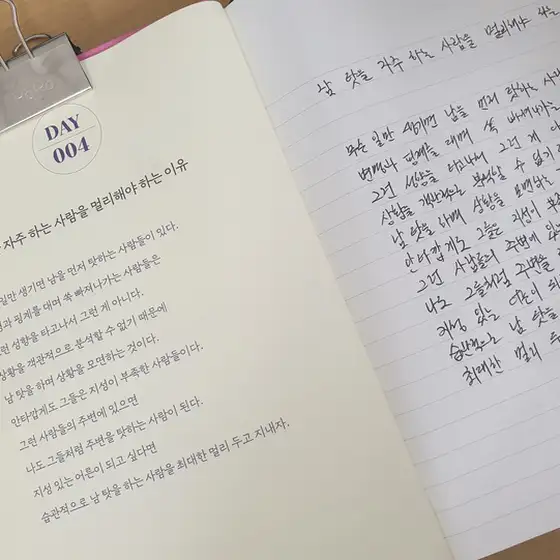 DAY
004
자주 하는 사람을 멀리해야 하는 이유
일만 생기면 남을 먼저 탓하는 사람들이 있다.
핑계를 대며 쏙 빠져나가는 사람들은
성향을 타고나서 그런 게 아니다.
상황을 객관적으로 분석할 수 없기 때문에
남 탓을 하며 상황을 모면하는 것이다.
안타깝게도 그들은 지성이 부족한 사람들이다.
그런 사람들의 주변에 있으면
나도 그들처럼 주변을 탓하는 사람이 된다.
지성 있는 어른이 되고 싶다면
습관적으로 남 탓을 하는 사람을 최대한 멀리 두고 지내자.
남 탓을 자주 하는 사람을 멀리해야 하는
무슨 일만 생기면 남을 먼저 탓하는
변명과 핑계를 대며 쏙 빠져나가는
그런 성향을 타고나서 그런 게
상황을 객관적으로 분석할 수 없기
남 탓을 하며 상황을 모면하는
안타깝게도 그들은 지성이
그런 사람들의 주변에
나도 그들처럼 주변을
지성 있는 어른이
습관적으로 남 탓을
최대한 멀리